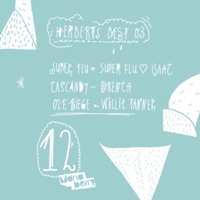 HERBERTS BEST 03
SUPER FLU - SUPER FLU ♡ ISAAC
CASCANDY - DRENCH
OLE BIEGE - WILLIE TANNER
12
Mona
berry